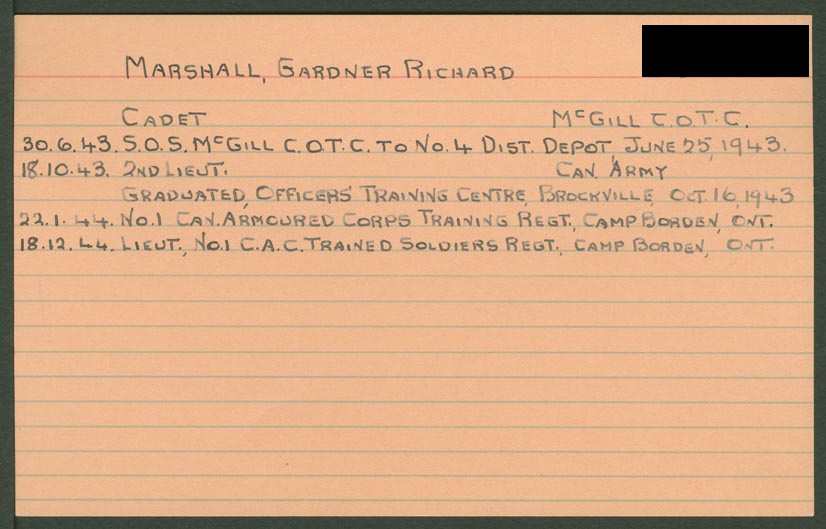 MARSHALL, GARDNER RICHARD
CADET McGILL C.O.T.C.
30.6.43. S.O.S. McGILL C.O.T.C. TO No.4 DIST. DEPOT, JUNE 25, 1943.
18.10.43. 2ND LIEUT. CAN. ARMY
GRADUATED, OFFICERS' TRAINING CENTRE, BROCKVILLE, OCT. 16, 1943
22.1.44. No.1 CAN. ARMOURED CORPS TRAINING REGT., CAMP BORDEN, ONT.
18.12.44. LIEUT., No.1 C.A.C. TRAINED SOLDIERS REGT., CAMP BORDEN, ONT.